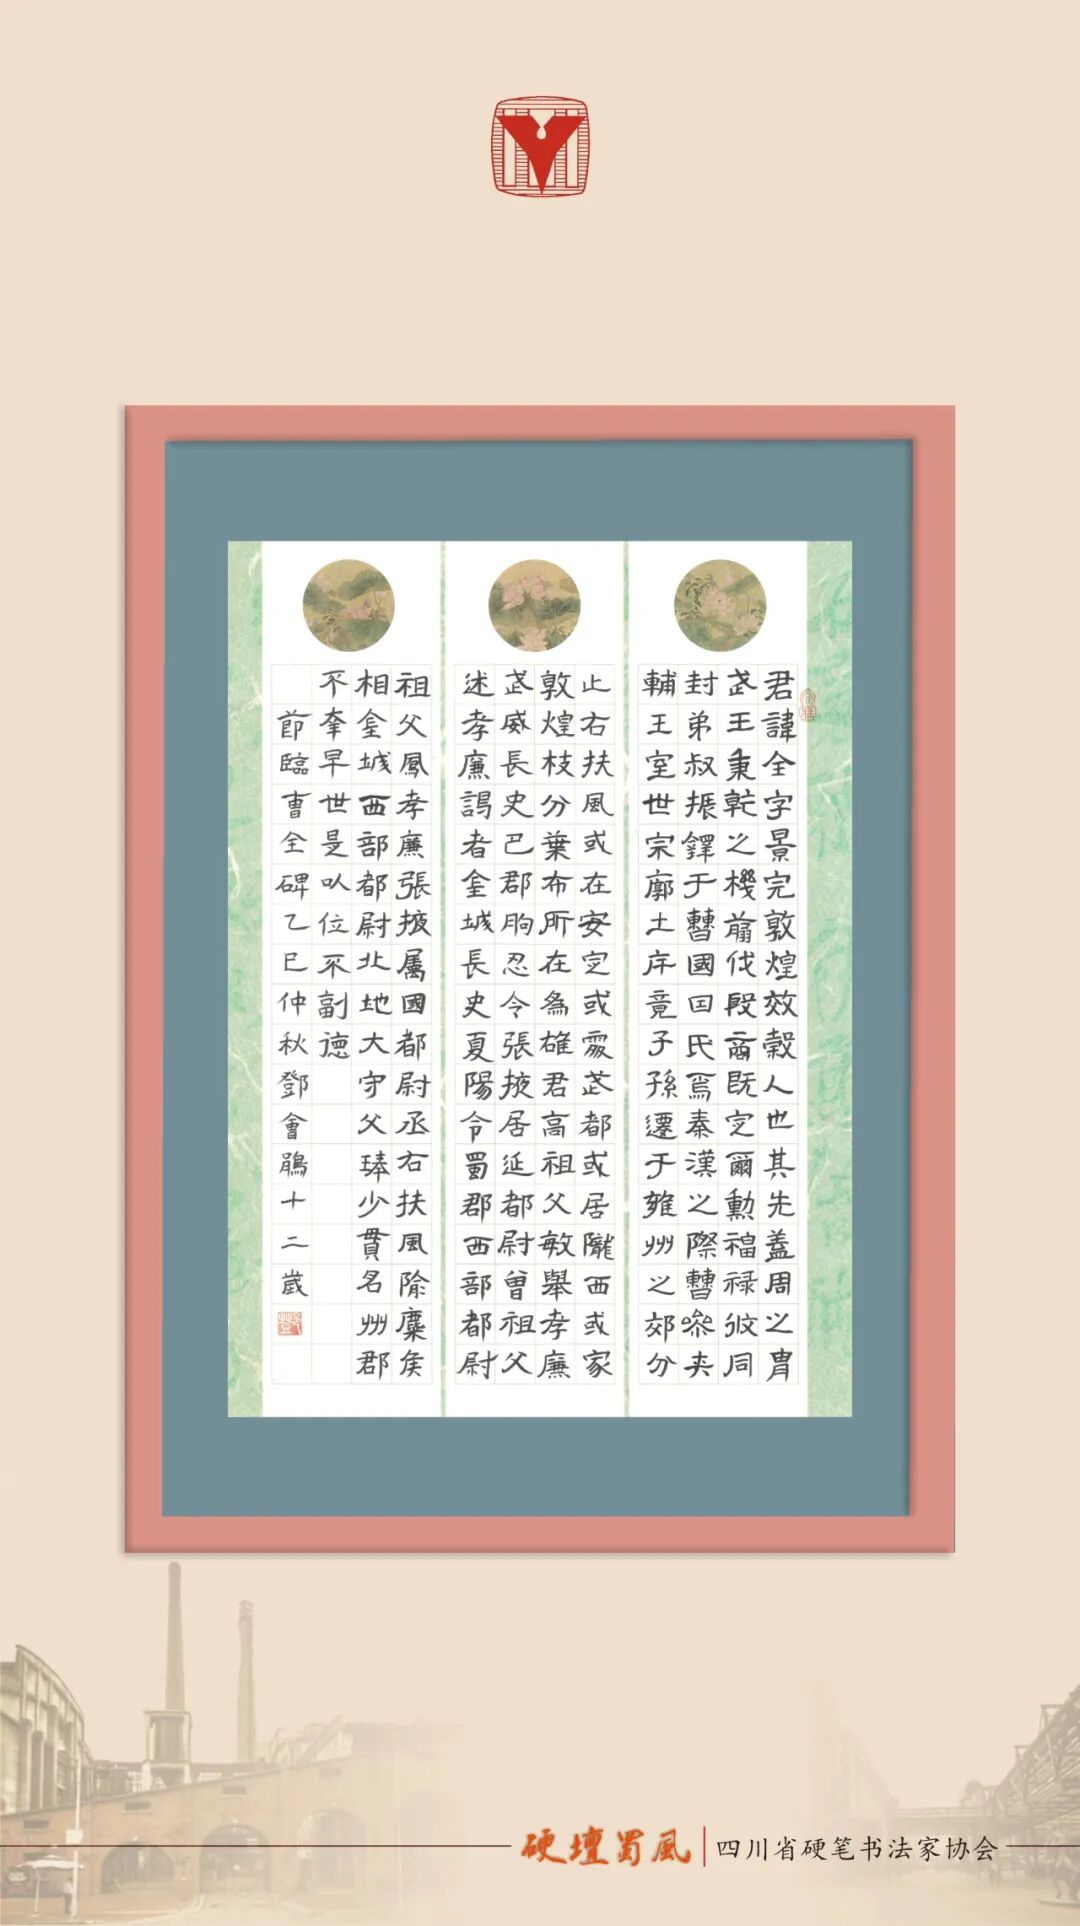 君諱全字景完敦煌效穀人也其先蓋周之胄
武王秉乾之機翦伐殷商既定爾勳福禄攸同
封弟叔振鐸于曹國囙氏焉秦漢之際曹參夹
輔王室世宗廓土斥竟子孫遷于雍州之郊分
止右扶風或在安定或處武都或居隴西或家
敦煌枝分葉布所在為雄君高祖父敏舉孝廉
武威長史巴郡朐忍令張掖居延都尉曾祖父
述孝廉謁者金城長史夏陽令蜀郡西部都尉
祖父鳳孝廉張掖属國都尉丞右扶風隃麋侯
相金城西部都尉北地大守父琫少貫名州郡
不幸早世是以位不副德
節臨曹全碑乙巳仲秋鄧會鵑十二歲
硬壇蜀風
四川省硬笔书法家协会